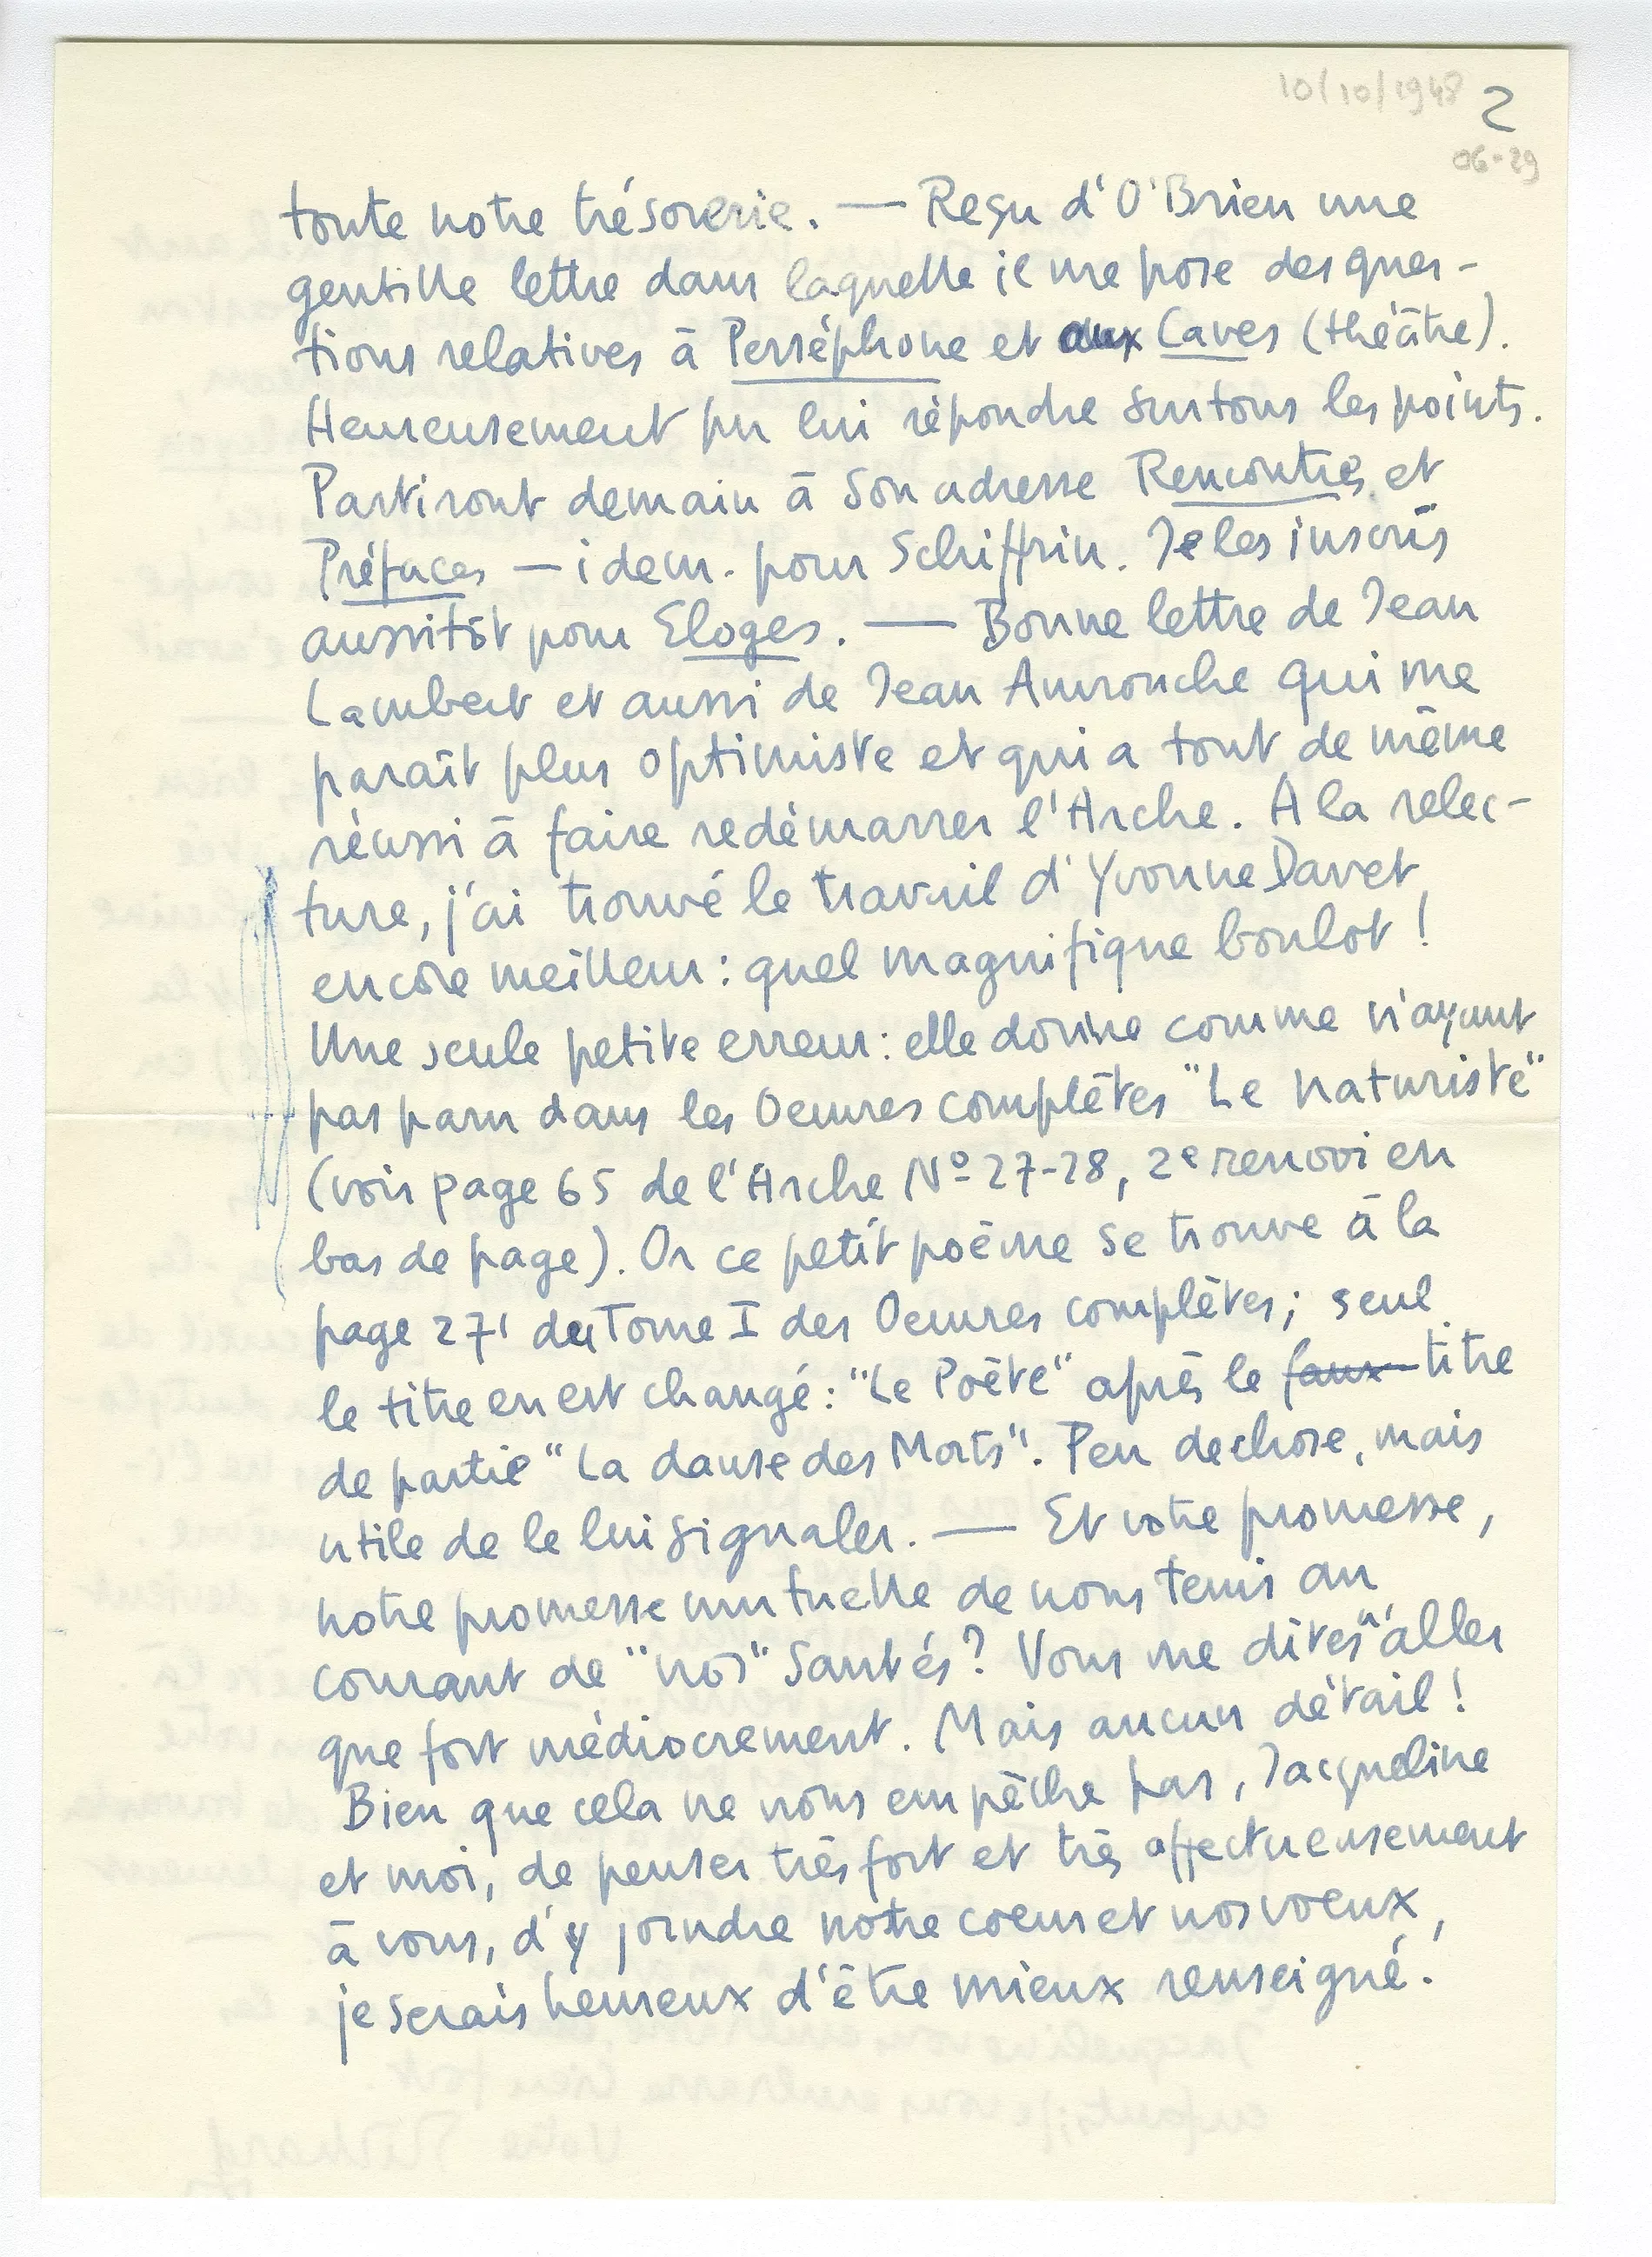 10/10/1948
2
06-29
toute notre trésorerie. — Reçu d'O'Brien une
gentille lettre dans laquelle il me pose des ques-
tions relatives à Perséphone et aux Caves (théâtre).
Heureusement pu lui répondre sur tous les points.
Partiront demain à son adresse Rencontres et
Préfaces — idem. pour Schiffrin. Je les inscris
aussitôt pour Eloges. — Bonne lettre de Jean
Lambert et aussi de Jean Amrouche qui me
paraît plus optimiste et qui a tout de même
réussi à faire redémarrer l'Arche. A la relec-
ture, j'ai trouvé le travail d'Yvonne Davet
encore meilleur : quel magnifique boulot !
Une seule petite erreur : elle donne comme n'ayant
pas paru dans les Oeuvres complètes "Le naturiste"
(voir page 65 de l'Arche Nº 27-28, 2e renvoi en
bas de page). Or ce petit poème se trouve à la
page 271 du Tome I des Oeuvres complètes ; seul
le titre en est changé : "Le Poète" après le faux titre
de partie "La danse des Morts". Peu de chose, mais
utile de le lui signaler. — Et votre promesse,
notre promesse mutuelle de nous tenir au
courant de "nos" santés ? Vous me dites "n'aller
que fort médiocrement. Mais aucun détail !
Bien que cela ne nous empêche pas, Jacqueline
et moi, de penser très fort et très affectueusement
à vous, d'y joindre notre coeur et nos voeux,
je serais heureux d'être mieux renseigné.